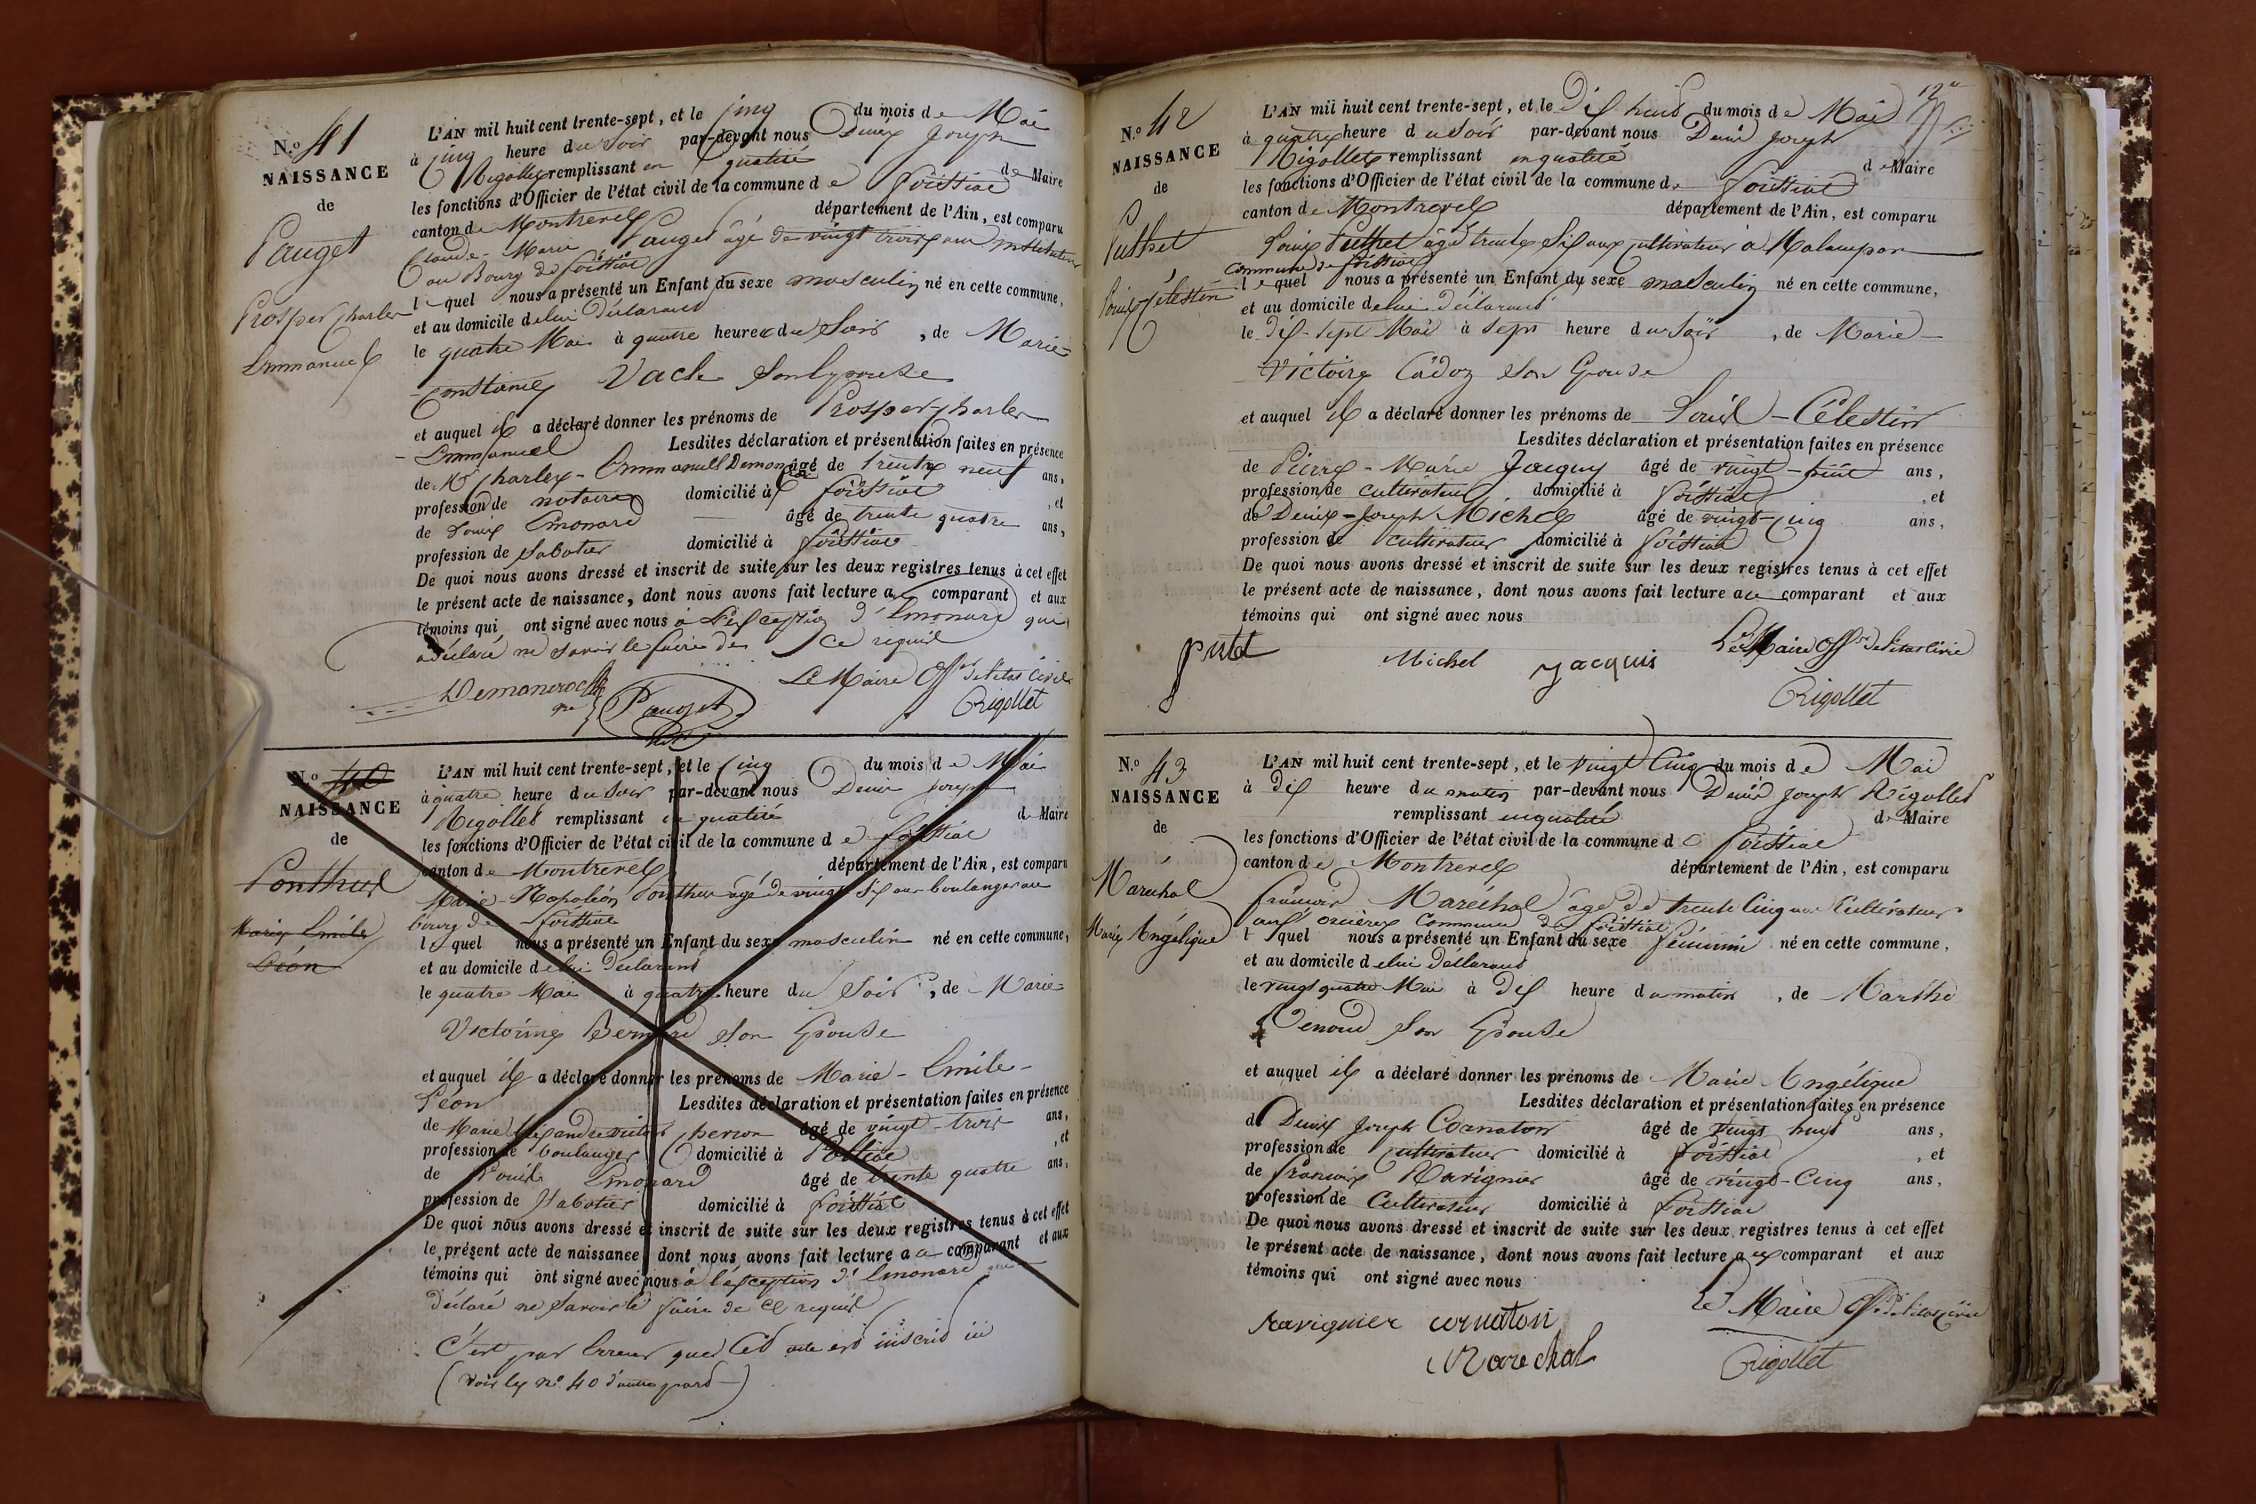 N.° 41
NAISSANCE
de
Pauget
Prosper Charles
Emmanuel
L'AN mil huit cent trente-sept, et le cinq du mois de Mai
à cinq heure du soir par-devant nous Denis Joseph
Rigollet remplissant en qualité de Maire
les fonctions d'Officier de l'état civil de la commune de foissiat
canton de Montrevel département de l'Ain, est comparu
Claude-Marie Pauget âgé de vingt trois ans instituteur
au Bourg de foissiat
lequel nous a présenté un Enfant du sexe masculin né en cette commune,
et au domicile de lui déclarant
le quatre Mai à quatre heure du Soir, de Marie
Constance Vach Son Epouse
et auquel il a déclaré donner les prénoms de Prosper Charles
Emmanuel Lesdites déclaration et présentation faites en présence
de Mr Charles-Emmanuel âgé de trente neuf ans,
profession de notaire domicilié à foissiat, et
de Louis Emonard âgé de trente quatre ans,
profession de Sabotier domicilié à foissiat
De quoi nous avons dressé et inscrit de suite sur les deux registres tenus à cet effet
le présent acte de naissance, dont nous avons fait lecture au comparant et aux
témoins qui ont signé avec nous à l'exception d'Emonard qui
a déclaré ne savoir le faire de ce requis
Le Maire Off de l'état Civil
Pauget Rigollet
N.° 40
NAISSANCE
de
Ponthus
Marie Emile
Léon
L'AN mil huit cent trente-sept, et le cinq du mois de Mai
à quatre heure du soir par-devant nous Denis Joseph
Rigollet remplissant en qualité de Maire
les fonctions d'Officier de l'état civil de la commune de foissiat
canton de Montrevel département de l'Ain, est comparu
Marie-Napoléon Ponthus âgé de vingt Six ans boulanger au
bourg de foissiat
lequel nous a présenté un Enfant du sexe masculin né en cette commune,
et au domicile de lui déclarant
le quatre Mai à quatre heure du Soir, de Marie
Victoire Bernard Son Epouse
et auquel il a déclaré donner les prénoms de Marie-Emile-
Léon Lesdites déclaration et présentation faites en présence
de Marie âgé de vingt-trois ans,
profession de boulanger domicilié à foissiat, et
de Louis Emonard âgé de trente quatre ans,
profession de Sabotier domicilié à foissiat
De quoi nous avons dressé et inscrit de suite sur les deux registres tenus à cet effet
le présent acte de naissance dont nous avons fait lecture au comparant et aux
témoins qui ont signé avec nous à l'exception d'Emonard qui
déclaré ne savoir le faire de ce requis
C'est par erreur que cet acte est inscrit ici
(voir le n° 40 d'autre part)
N.° 42
NAISSANCE
de
Puthet
Louis Célestin
L'AN mil huit cent trente-sept, et le Dix huit du mois de Mai
à quatre heure du Soir par-devant nous Denis Joseph
Rigollet remplissant en qualité de Maire
les fonctions d'Officier de l'état civil de la commune de foissiat
canton de Montrevel département de l'Ain, est comparu
Louis Puthet âgé trente Six ans cultivateur à
Commune de foissiat
lequel nous a présenté un Enfant du sexe masculin né en cette commune,
et au domicile de lui déclarant
le Dix-Sept Mai à Sept heure du Soir, de Marie
Victoire Cadoz Son Epouse
et auquel il a déclaré donner les prénoms de Louis-Célestin
Lesdites déclaration et présentation faites en présence
de Pierre-Marie Jacquis âgé de vingt-huit ans,
profession de cultivateur domicilié à foissiat, et
de Denis-Joseph Michel âgé de vingt-cinq ans,
profession de cultivateur domicilié à foissiat
De quoi nous avons dressé et inscrit de suite sur les deux registres tenus à cet effet
le présent acte de naissance, dont nous avons fait lecture au comparant et aux
témoins qui ont signé avec nous
Le Maire Off de l'état Civil
Michel Jacquis
Rigollet
N.° 43
NAISSANCE
de
Maréchal
Marie Angélique
L'AN mil huit cent trente-sept, et le vingt Cinq du mois de Mai
à Dix heure du matin par-devant nous Denis Joseph Rigollet
remplissant en qualité de Maire
les fonctions d'Officier de l'état civil de la commune de foissiat
canton de Montrevel département de l'Ain, est comparu
françois Maréchal âgé de trente Cinq ans Cultivateur
aux orcières Commune de foissiat
lequel nous a présenté un Enfant du sexe féminin né en cette commune,
et au domicile de lui déclarant
le vingt quatre Mai à Dix heure du matin, de Marthe
Venoud Son Epouse
et auquel il a déclaré donner les prénoms de Marie Angélique
Lesdites déclaration et présentation faites en présence
de Denis Joseph Cornaton âgé de vingt huit ans,
profession de cultivateur domicilié à foissiat, et
de françois Ravignier âgé de vingt-Cinq ans,
profession de Cultivateur domicilié à foissiat
De quoi nous avons dressé et inscrit de suite sur les deux registres tenus à cet effet
le présent acte de naissance, dont nous avons fait lecture au comparant et aux
témoins qui ont signé avec nous
Le Maire Off de l'état Civil
Ravignier cornaton
Marechal Rigollet